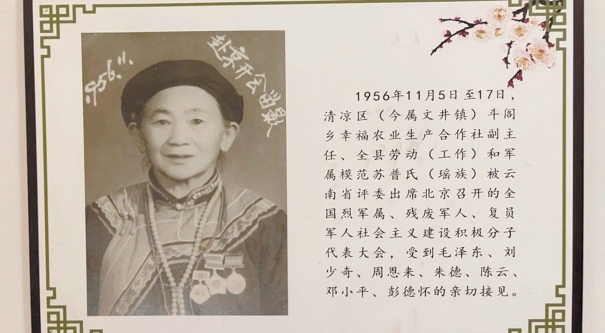 1956.11.
赴京开会留影
1956年11月5日至17日，
清凉区（今属文井镇）斗阁
乡幸福农业生产合作社副主
任、全县劳动（工作）和军
属模范苏普氏（瑶族）被云
南省评委出席北京召开的全
国烈军属、残废军人、复员
军人社会主义建设积极分子
代表大会，受到毛泽东、刘
少奇、周恩来、朱德、陈云、
邓小平、彭德怀的亲切接见。